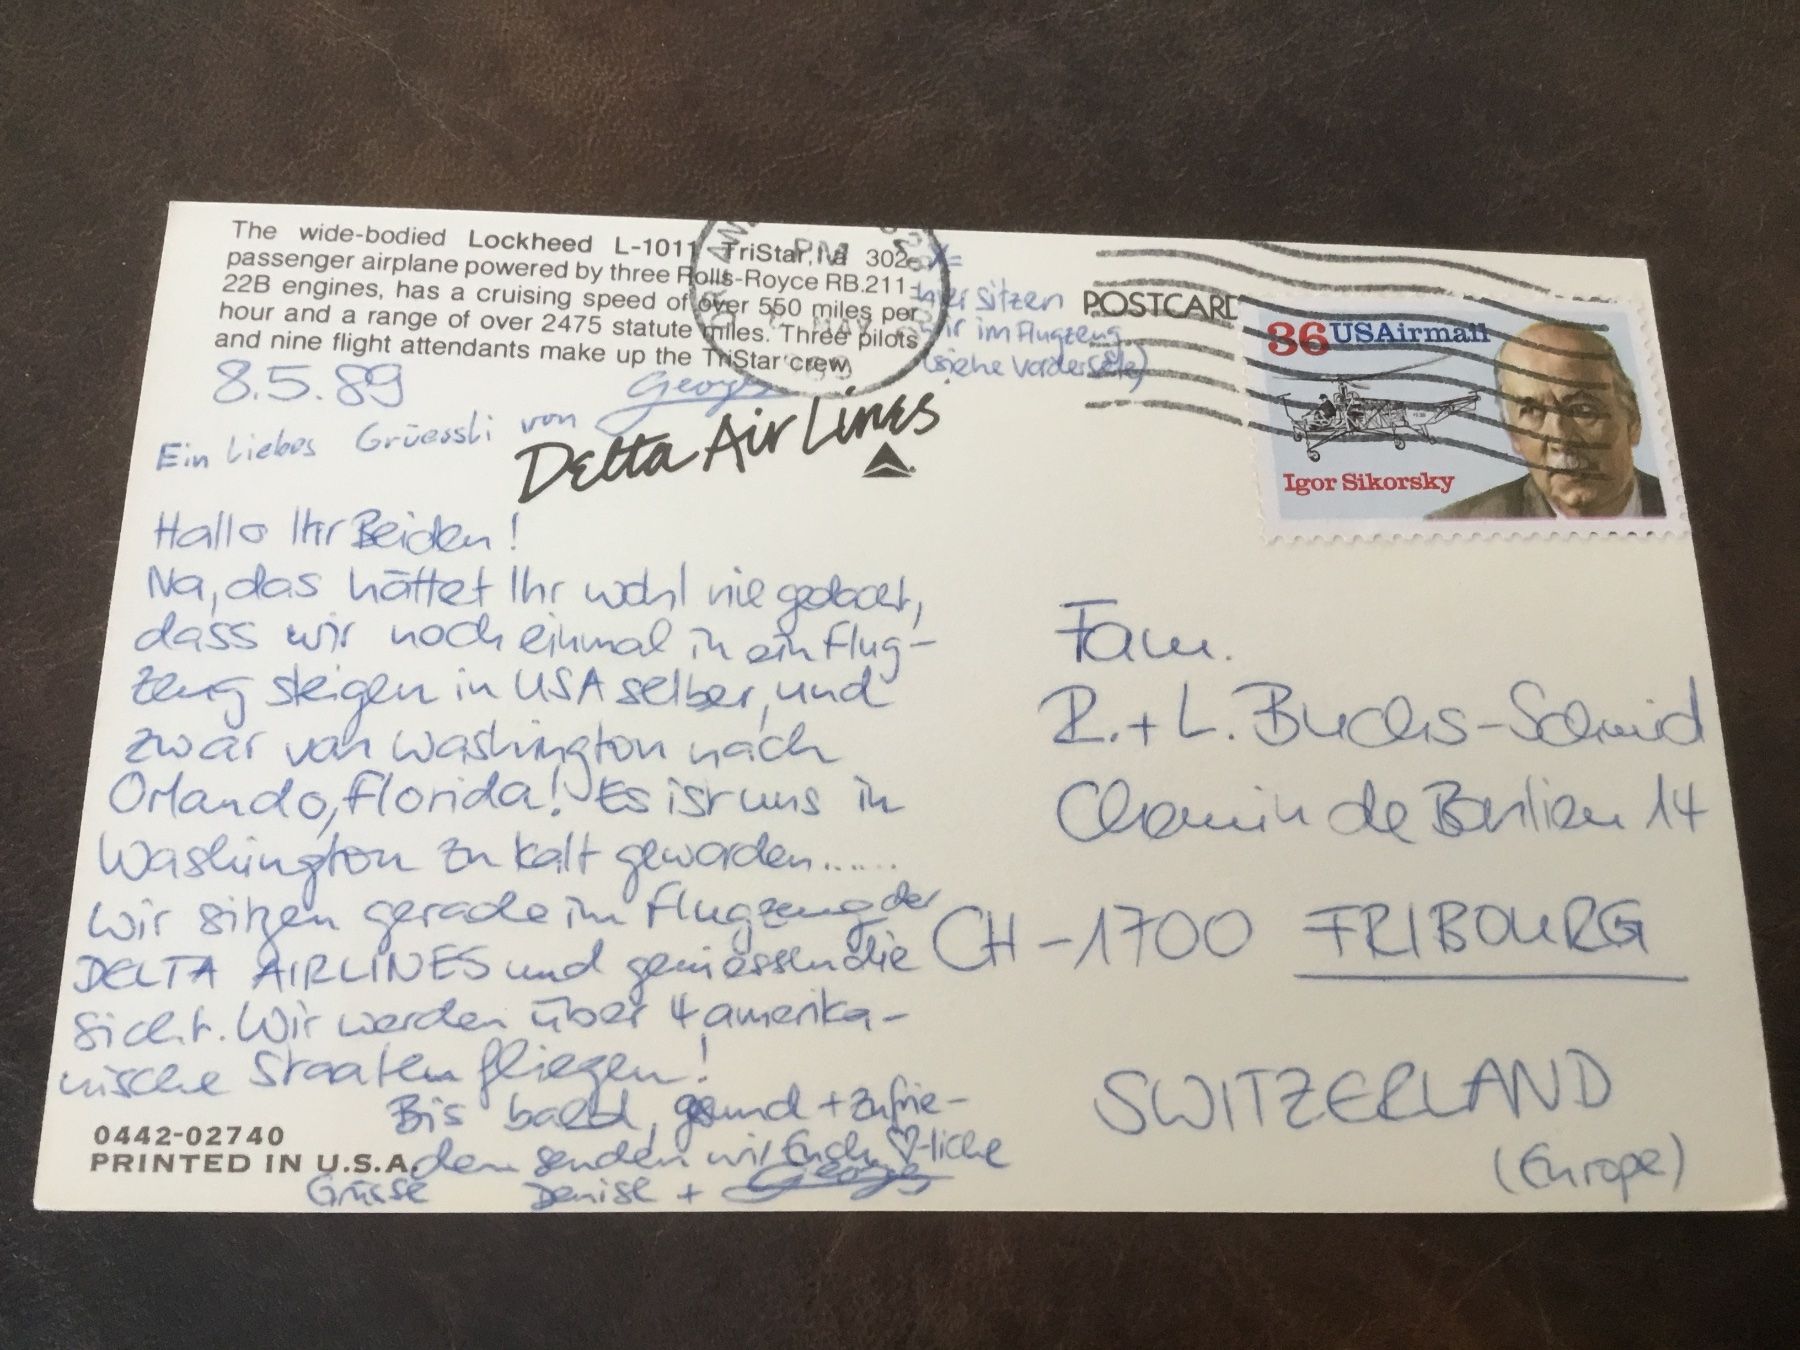 The wide-bodied Lockheed L-1011 TriStar, a 302-
passenger airplane powered by three Rolls-Royce RB.211-
22B engines, has a cruising speed of over 550 miles per
hour and a range of over 2475 statute miles. Three pilots
and nine flight attendants make up the TriStar crew.
8.5.89
Ein liebes Grüessli von Georges
Delta Air Lines
Hallo Ihr Beiden!
Na, das hättet Ihr wohl nie gedacht,
dass wir noch einmal in ein Flug-
zeug steigen in USA selber, und
zwar von Washington nach
Orlando, Florida! Es ist uns in
Washington zu kalt geworden......
Wir sitzen gerade im Flugzeug der
DELTA AIRLINES und geniessen die
Sicht. Wir werden über 4 amerika-
nische Staaten fliegen!
Bis bald, gesund + zufrie-
den senden wir Euch ♡-liche
Grüsse Denise + Georges
0442-02740
PRINTED IN U.S.A.
X=
hier sitzen
wir im Flugzeug
(siehe Vorderseite)
PM
MAY
POSTCARD
36 USAirmail
Igor Sikorsky
Fam.
R. + L. Buchs-Schmid
Chemin de
14
CH-1700 FRIBOURG
SWITZERLAND
(Europe)